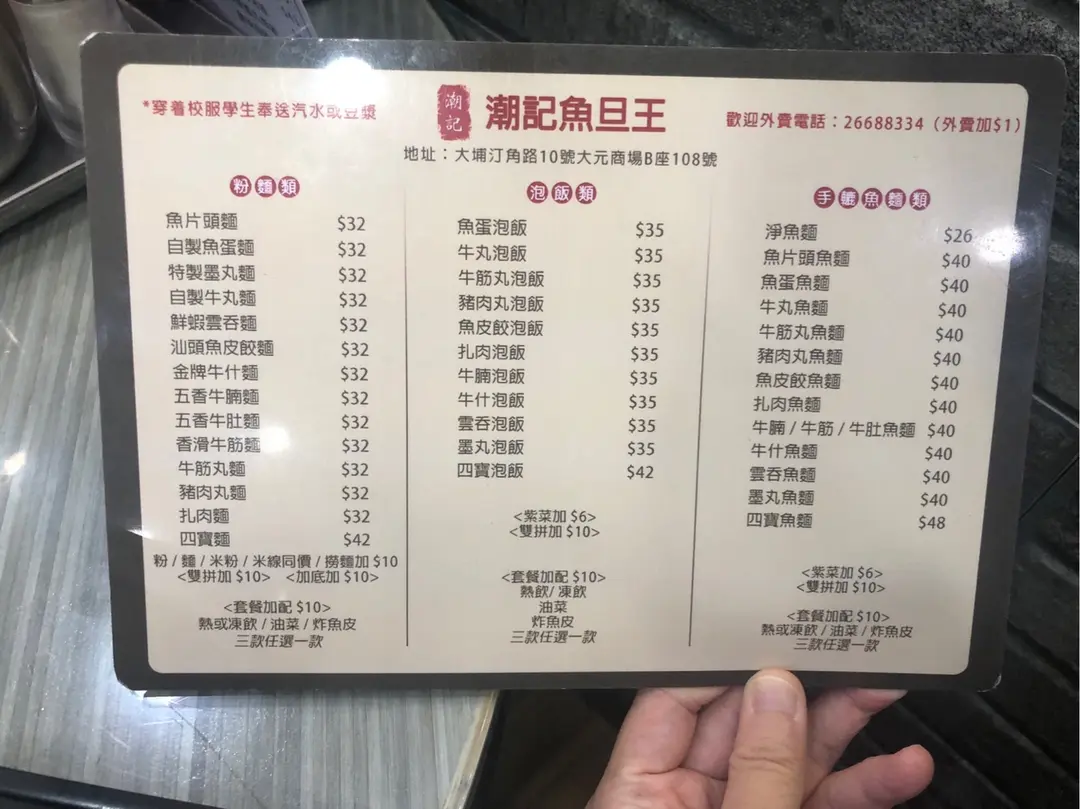 *穿着校服學生奉送汽水或豆漿
潮記
潮記魚旦王
歡迎外賣電話：26688334（外賣加$1）
地址：大埔汀角路10號大元商場B座108號
粉麵類
魚片頭麵 $32
自製魚蛋麵 $32
特製墨丸麵 $32
自製牛丸麵 $32
鮮蝦雲吞麵 $32
汕頭魚皮餃麵 $32
金牌牛什麵 $32
五香牛腩麵 $32
五香牛肚麵 $32
香滑牛筋麵 $32
牛筋丸麵 $32
豬肉丸麵 $32
扎肉麵 $32
四寶麵 $42
粉 / 麵 / 米粉 / 米線同價 / 撈麵加 $10
<雙拼加 $10> <加底加 $10>
<套餐加配 $10>
熱或凍飲 / 油菜 / 炸魚皮
三款任選一款
泡飯類
魚蛋泡飯 $35
牛丸泡飯 $35
牛筋丸泡飯 $35
豬肉丸泡飯 $35
魚皮餃泡飯 $35
扎肉泡飯 $35
牛腩泡飯 $35
牛什泡飯 $35
雲吞泡飯 $35
墨丸泡飯 $35
四寶泡飯 $42
<紫菜加 $6>
<雙拼加 $10>
<套餐加配 $10>
熱飲/ 凍飲
油菜
炸魚皮
三款任選一款
手轆魚麵類
淨魚麵 $26
魚片頭魚麵 $40
魚蛋魚麵 $40
牛丸魚麵 $40
牛筋丸魚麵 $40
豬肉丸魚麵 $40
魚皮餃魚麵 $40
扎肉魚麵 $40
牛腩 / 牛筋 / 牛肚魚麵 $40
牛什魚麵 $40
雲吞魚麵 $40
墨丸魚麵 $40
四寶魚麵 $48
<紫菜加 $6>
<雙拼加 $10>
<套餐加配 $10>
熱或凍飲 / 油菜 / 炸魚皮
三款任選一款